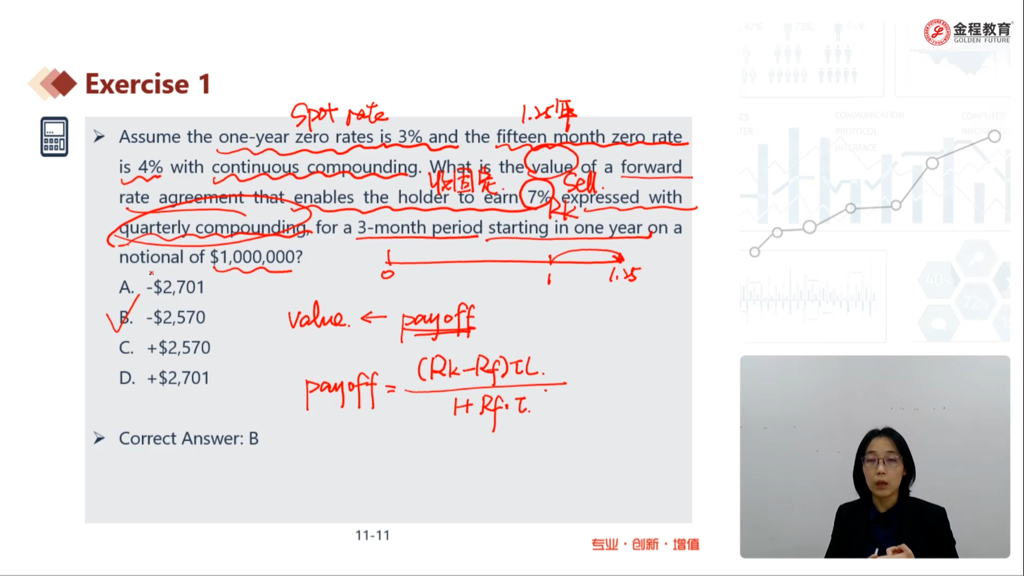 金程教育
GOLDEN FUTURE
Exercise 1
Spot rate
1.25年
Assume the one-year zero rates is 3% and the fifteen month zero rate
is 4% with continuous compounding. What is the value of a forward
收固定. Sell.
rate agreement that enables the holder to earn 7% expressed with
Rk
quarterly compounding, for a 3-month period starting in one year on a
notional of $1,000,000?
0 1 1.25
A. -$2,701
B. -$2,570
C. +$2,570
D. +$2,701
value. ← payoff
payoff = (Rk-Rf)τL.
1+Rf·τ.
Correct Answer: B
11-11
专业·创新·增值
COMMUNICATION
PROTOCOL